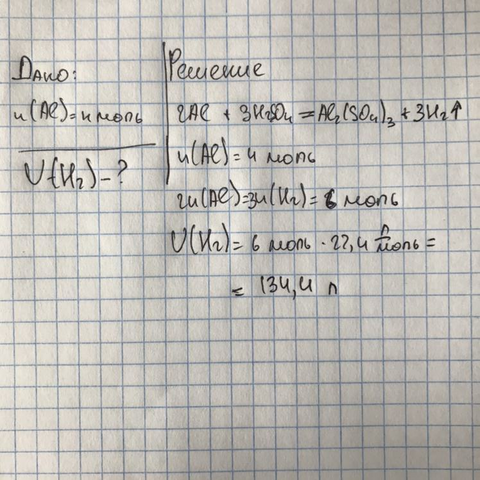 Дано:
n(Al)=4 моль
V(H₂)-?
Решение
2Al + 3H₂SO₄ = Al₂(SO₄)₃ + 3H₂↑
n(Al)=4 моль
2n(Al)=3n(H₂)= 6 моль
V(H₂)= 6 моль · 22,4 л/моль =
= 134,4 л